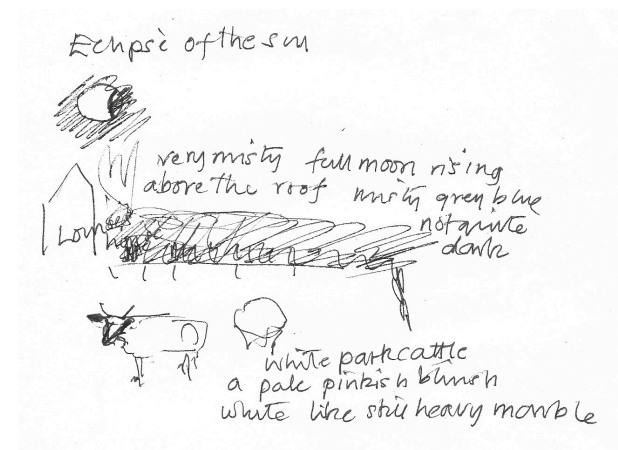 Eclipse of the sun
very misty full moon rising
above the roof misty grey blue
not quite
dark
house
white park cattle
a pale pinkish bluish
white like still heavy marble